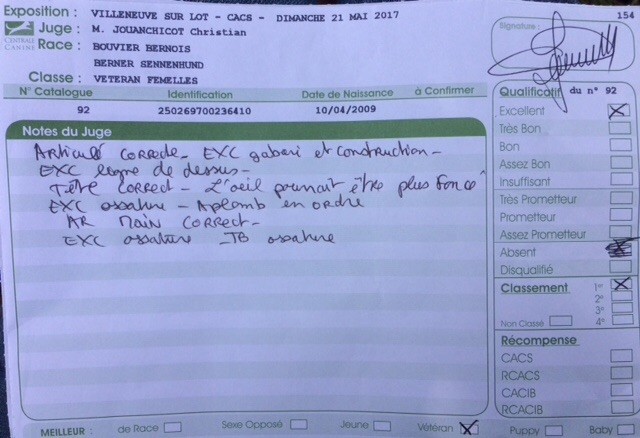 Exposition : VILLENEUVE SUR LOT - CACS - DIMANCHE 21 MAI 2017
154
CENTRALE CANINE
Juge : M. JOUANCHICOT Christian
Signature :
Race : BOUVIER BERNOIS
BERNER SENNENHUND
Classe : VETERAN FEMELLES
N° Catalogue Identification Date de Naissance à Confirmer
92 250269700236410 10/04/2009
Qualificatif du n° 92
Excellent X
Très Bon
Bon
Assez Bon
Insuffisant
Très Prometteur
Prometteur
Assez Prometteur
Absent
Disqualifié
Notes du Juge
Articulé correcte - EXC gabari et construction -
EXC ligne de dessus -
Tête correct - L'oeil pourrait être plus foncé
EXC ossature - Aplomb en ordre
AR Main correct -
EXC ossature - TB ossature
Classement 1er X
2e
3e
Non Classé 4e
Récompense
CACS
RCACS
CACIB
RCACIB
MEILLEUR : de Race Sexe Opposé Jeune Vétéran X Puppy Baby